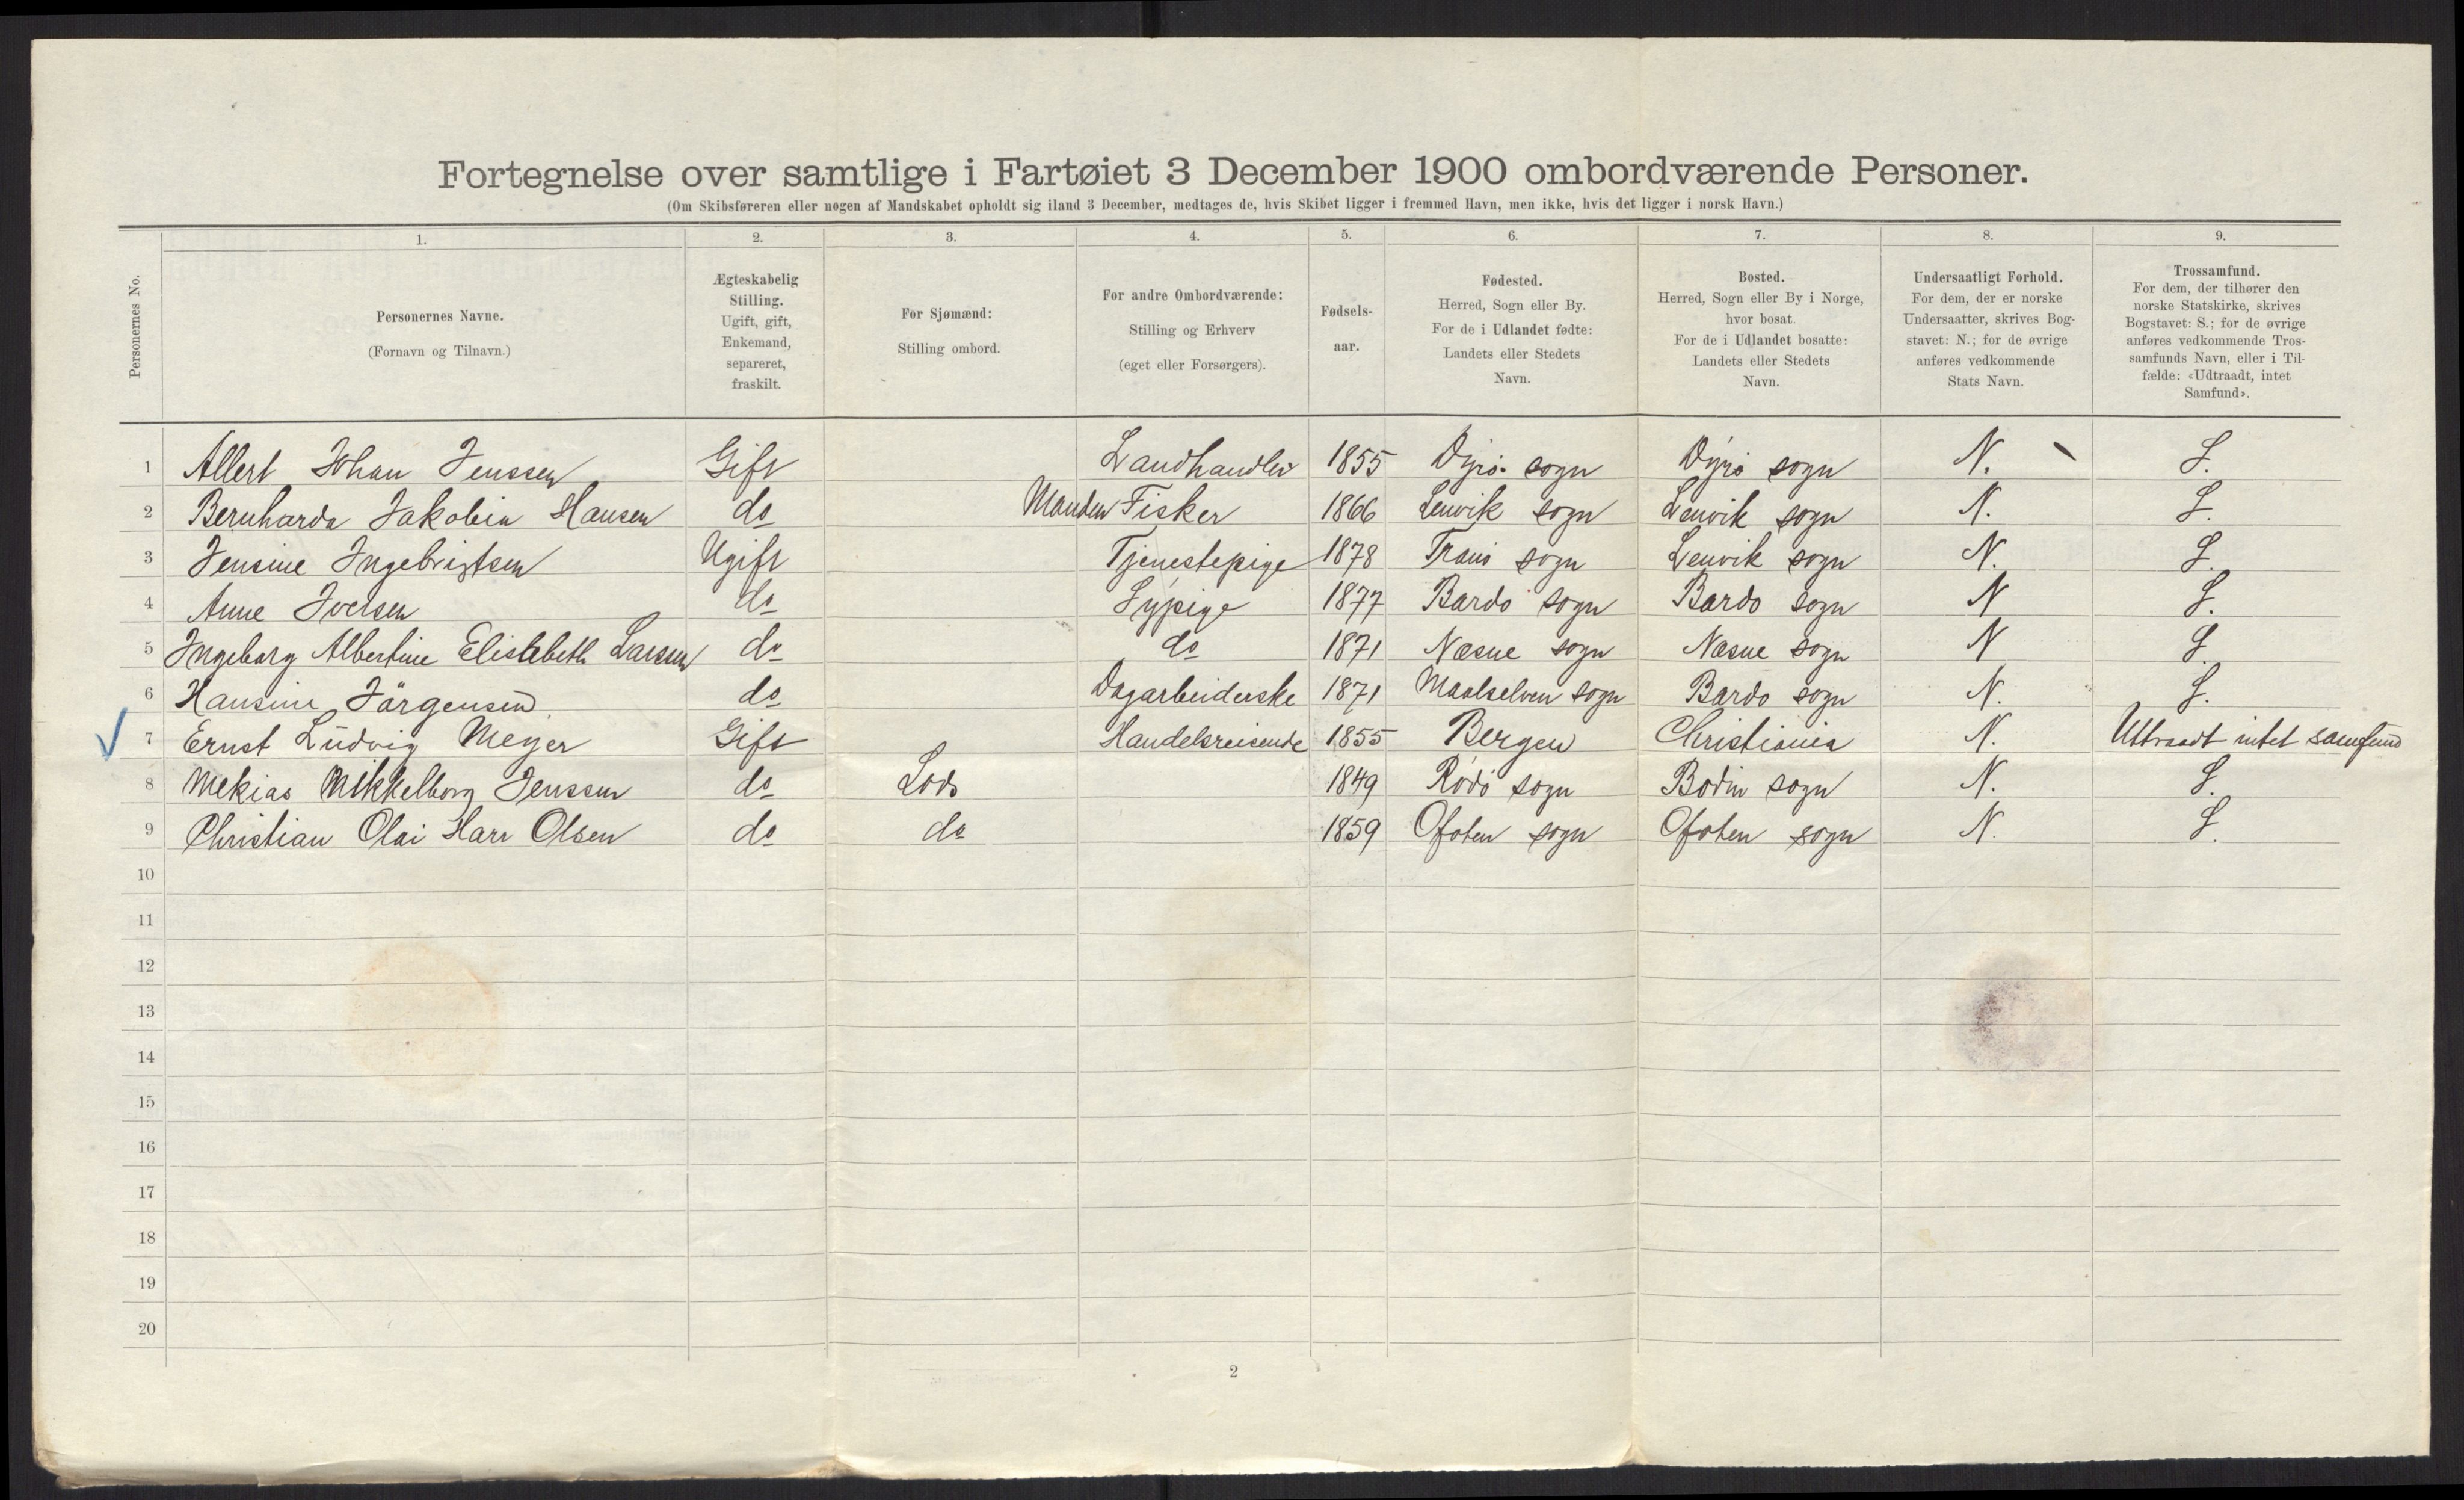 Fortegnelse over samtlige i Fartøiet 3 December 1900 ombordværende Personer.
(Om Skibsføreren eller nogen af Mandskabet opholdt sig iland 3 December, medtages de, hvis Skibet ligger i fremmed Havn, men ikke, hvis det ligger i norsk Havn.)
Personernes No.
1.
Personernes Navne.
(Fornavn og Tilnavn.)
2.
Ægteskabelig
Stilling.
Ugift, gift,
Enkemand,
separeret,
fraskilt.
3.
For Sjømænd:
Stilling ombord.
4.
For andre Ombordværende:
Stilling og Erhverv
(eget eller Forsørgers).
5.
Fødsels-
aar.
6.
Fødested.
Herred, Sogn eller By.
For de i Udlandet fødte:
Landets eller Stedets
Navn.
7.
Bosted.
Herred, Sogn eller By i Norge,
hvor bosat.
For de i Udlandet bosatte:
Landets eller Stedets
Navn.
8.
Undersaatligt Forhold.
For dem, der er norske
Undersaatter, skrives Bog-
stavet: N.; for de øvrige
anføres vedkommende
Stats Navn.
9.
Trossamfund.
For dem, der tilhører den
norske Statskirke, skrives
Bogstavet: S.; for de øvrige
anføres vedkommende Tros-
samfunds Navn, eller i Til-
fælde: «Udtraadt, intet
Samfund».
1 Allert Johan Jenssen Gift Landhandler 1855 Dyrö sogn Dyrö sogn N. S.
2 Bernharda Jakobin Hansen do Manden Fisker 1866 Lenvik sogn Lenvik sogn N. S.
3 Jensine Ingebrigtsen Ugift Tjenestepige 1878 Tranö sogn Lenvik sogn N. S.
4 Anne Iversen do Sypige 1877 Bardo sogn Bardo sogn N S.
5 Ingeborg Albertine Elisabeth Larsen do do 1871 Næsne sogn Næsne sogn N S.
6 Hansine Jörgensen do Dagarbeiderske 1871 Maalselven sogn Bardo sogn N. S.
7 Ernst Ludvig Meyer Gift Handelsreisende 1855 Bergen Christiania N. Uttraadt intet samfund
8 Mekias Mikkelborg Jenssen do Lods 1849 Rödö sogn Bodin sogn N. S.
9 Christian Olai Harr Olsen do do 1859 Ofoten sogn Ofoten sogn N. S.
10
11
12
13
14
15
16
17
18
19
20
2